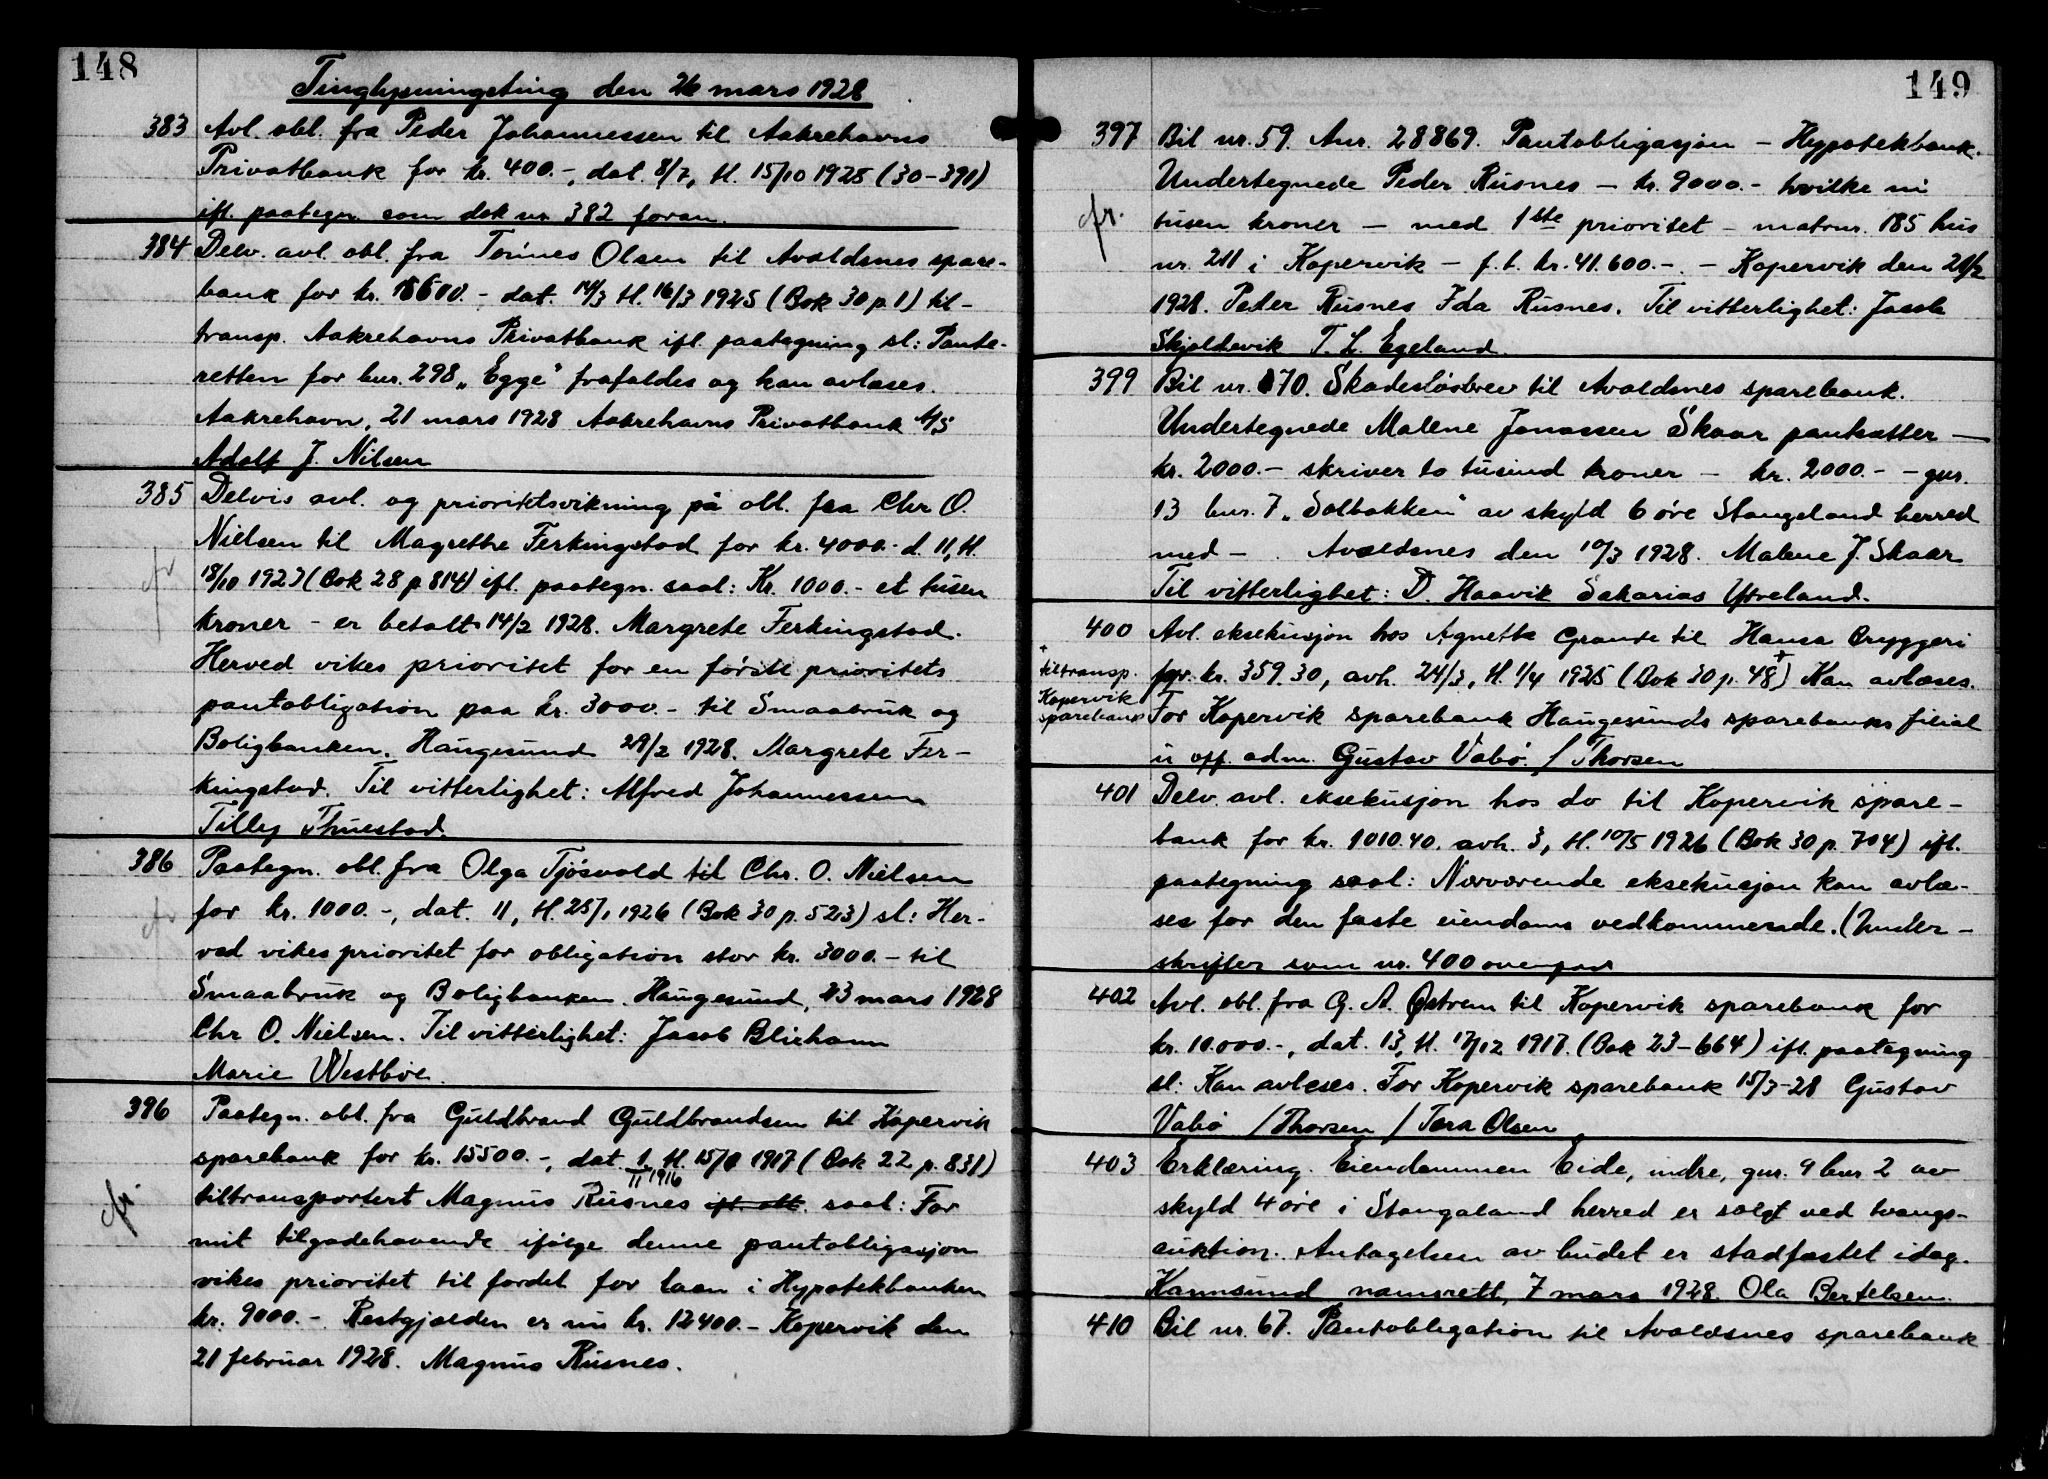 148
Tinglysningsting den 26 mars 1928
383 Avl. obl. fra Peder Johannessen til Aakrehavns
Privatbank for kr. 400.-, dat. 8/7, tl. 15/10 1925 (30-391)
ifl. paategn som dok nr 382 foran.
384 Delv. avl obl. fra Tønnes Olsen til Avaldsnes spare-
bank for kr. - dat. 14/3 tl. 16/3 1925 (Bok 30 p 1) til-
transp. Aakrehavns Privatbank ifl. paategning sl: Pante-
retten for bnr. 298 „Egge" frafaldes og kan avlæses.
Aakrehavn, 21 mars 1928 Aakrehavns Privatbank A/S
Adolf J. Nilsen
385 Delvis avl. og prioritetsvikning på obl. fra Chr O.
Nielsen til Magrethe Ferkingstad for kr. 4000.- d. 11, tl.
18/10 1923 (Bok 28 p 814) ifl. paategn. saal: Kr. 1000.- et tusen
kroner - er betalt 14/2 1928. Margrete Ferkingstad.
Herved vikes prioritet for en første prioritets
pantobligation paa kr. 3000.- til Smaabruk og
Boligbanken. Haugesund 29/2 1928. Margrete Fer-
kingstad. Til vitterlighet: Alfred Johannessen
Tilly Thuestad.
386 Paategn. obl. fra Olga Tjøsvold til Chr. O. Nielsen
for kr. 1000.-, dat. 11, tl. 25/1 1926 (Bok 30 p. 523) sl: Her-
ved vikes prioritet for obligation stor kr. 3000.- til
Smaabruk og Boligbanken. Haugesund, 23 mars 1928
Chr O. Nielsen. Til vitterlighet: Jacob
Marie Westbøe.
396 Paategn. obl. fra Guldbrand Guldbrandsen til Kopervik
sparebank for kr. 15500.-, dat. 1/11 1916 tl. 1917 (Bok 22 p. 831)
tiltransportert Magnus Rusnes saal: For
mit tilgodehavende ifølge denne pantobligasjon
vikes prioritet til fordel for laan i Hypotekbanken
kr. 9000.-. Restgjælden er nu kr. 12400.- Kopervik den
21 februar 1928. Magnus Rusnes.
149
397 Bil nr. 59. Anr. 28869. Pantobligasjon - Hypotekbank.
Undertegnede Peder Rusnes - kr. 9000.- hvilke ni
tusen kroner - med 1ste prioritet - matrnr. 185 hus
nr. 211 i Kopervik - f.t. kr. 41.600.-. - Kopervik den 21/2
1928. Peder Rusnes Ida Rusnes. Til vitterlighet: Jacob
Skjoldevik T. L. Egeland.
399 Bil nr. 70. Skadesløsbrev til Avaldsnes sparebank.
Undertegnede Malene Jonassen Skaar pantsætter -
kr. 2000.- skriver to tusind kroner - kr. 2000.- - gnr.
13 bnr. 7 „Solbakken" av skyld 6 øre Stangeland herred
med - . Avaldsnes den 10/3 1928. Malene J. Skaar
Til vitterlighet: D. Haavik Sakarias Ytreland.
400 Avl. eksekusjon hos Agnethe Grande til Hansa Bryggeri
+ tiltransp.
Kopervik
sparebank
for kr. 359.30, avh. 24/3, tl. 1/4 1925 (Bok 30 p. 48+) Kan avlæses.
For Kopervik sparebank Haugesunds sparebanks filial
u off. adm. Gustav Vabø. / Thorsen
401 Delv. avl. eksekusjon hos do til Kopervik spare-
bank for kr. 1010.40. avh. 3, tl. 10/5 1926 (Bok 30 p. 704) ifl.
paategning saal: Nærværende eksekusjon kan avlæ-
ses for den faste eiendoms vedkommende. (Under-
skrifter som nr. 400 ovenfor
402 Avl. obl. fra G. A. Østrem til Kopervik sparebank for
kr. 10.000.-, dat. 13, tl. 17/12 1917. (Bok 23-664) ifl. paategning
sl: Kan avleses. For Kopervik sparebank 15/3-28 Gustav
Vabø / Thorsen / Tora Olsen
403 Erklæring. Eiendommen Eide, indre, gnr. 9 bnr 2 av
skyld 4 øre i Stangaland herred er solgt ved tvangs-
auktion. Antagelsen av budet er stadfæstet idag.
Karmsund namsrett, 7 mars 1928 Ola Bertelsen.
410 Bil nr. 67. Pantobligation til Avaldsnes sparebank